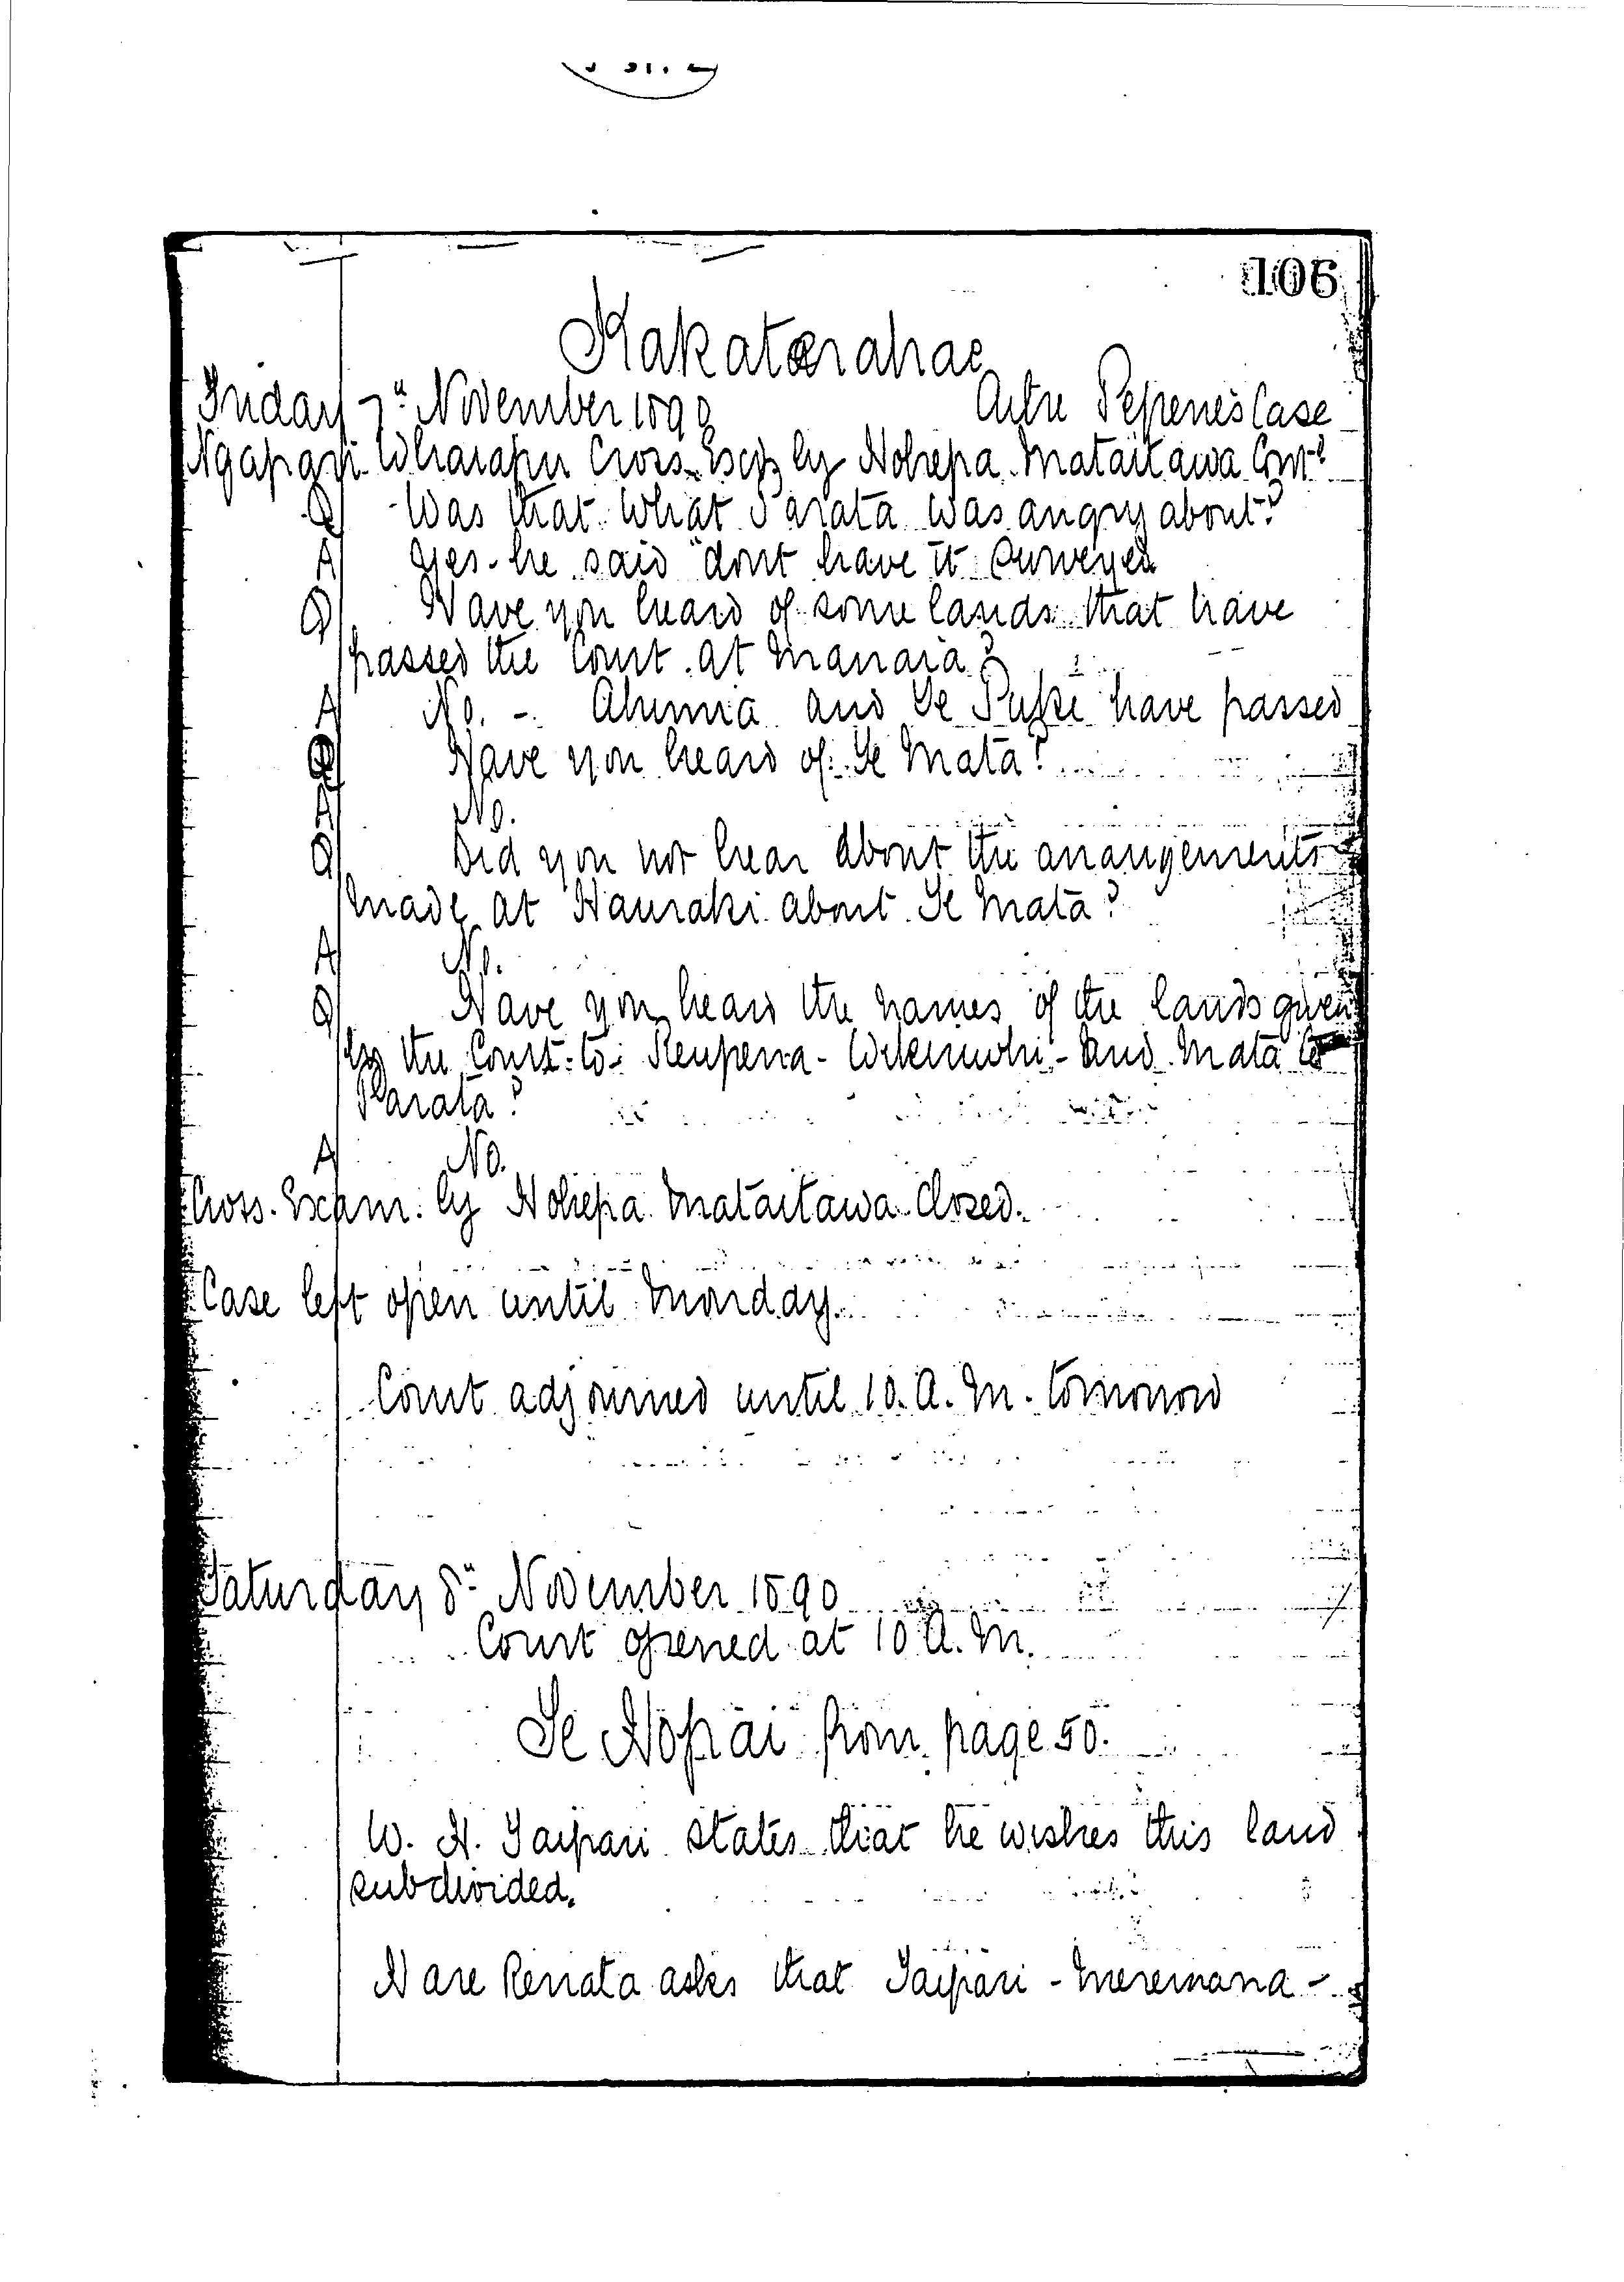 106
Kakatarahae
Friday 7th November 1890 Aitu Pepene's Case
Ngapari Wharapu Cross Exd by Hohepa Mataitawa Contd
Q Was that what Parata was angry about?
A Yes - he said "dont have it surveyed
Q Have you heard of some lands that have
passed the Court at Manaia?
A No. - Ahumia and Te Puke have passed
Q Have you heard of Te Mata?
A No.
Q Did you not hear about the arrangements
made at Hauraki about Te Mata?
A No.
Q Have you heard the names of the lands given
by the Court to Reupena - - and Mata to
Parata?
A No.
Cross. Exam. by Hohepa Mataitawa Closed.
Case left open until Monday.
Court adjourned until 10. A. M. tomorrow
Saturday 8th November 1890
Court opened at 10 A. M.
Te Hopai from page 50.
W. H. Taipari states that he wishes this land
subdivided.
Hare Renata asks that Taipari - Meremana -